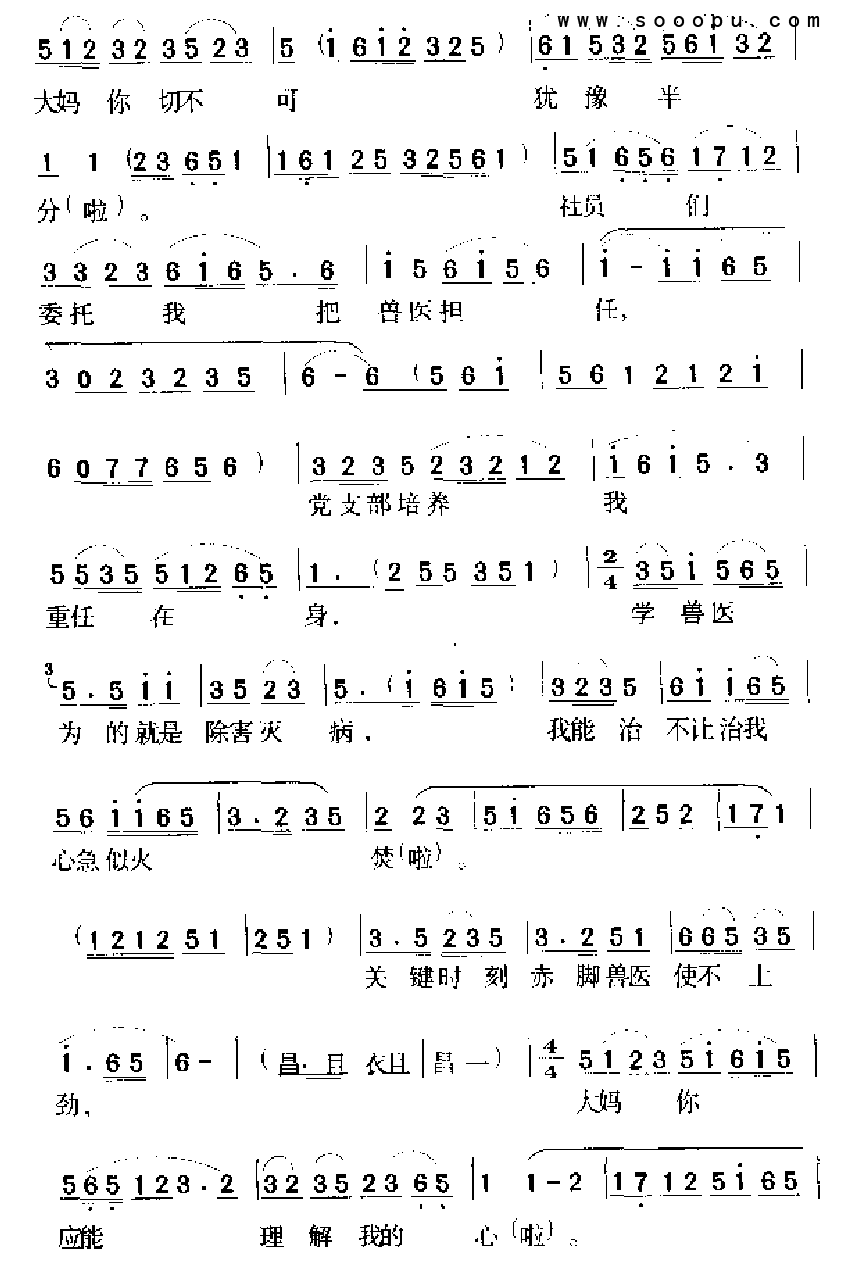 www.sooopu.com
512 32 3523 | 5 (i 6i2 325) | 61 532 561 32 |
大妈 你 切不 可 犹 豫 半
1 1 (23 651 | 161 25 32561) | 51 656 17 12 |
分(啦)。 社员 们
33 23 6i65.6 | i 5 6i56 | i - ii65 |
委托 我 把 兽医担 任,
3 023235 | 6 - 6 (5 6i | 561212i |
6 077656) | 3235 23212 | i6i5.3 |
党支部培养 我
5535 51265 | 1. (2 55 351) | 2/4 35i 565 |
重任 在 身. 学 兽医
3 5.5 ii | 35 23 | 5.(i 6i5) | 3235 | 6i i65 |
为 的就是 除害灭 病, 我能 治 不让治我
56 ii65 | 3.235 | 2 23 | 5i 656 | 252 | 171 |
心急似火 焚(啦)。
(1212 51 | 251) | 3.5 235 | 3.2 51 | 665 35 |
关 键时 刻 赤 脚兽医 使不 上
i.65 | 6- | (昌.且 衣且 | 昌 一) | 4/4 5123 5i6i5 |
劲, 大妈 你
565 123.2 | 32 35 23 65 | 1 1-2 | 17 125i65 |
应能 理 解 我的 心(啦)。